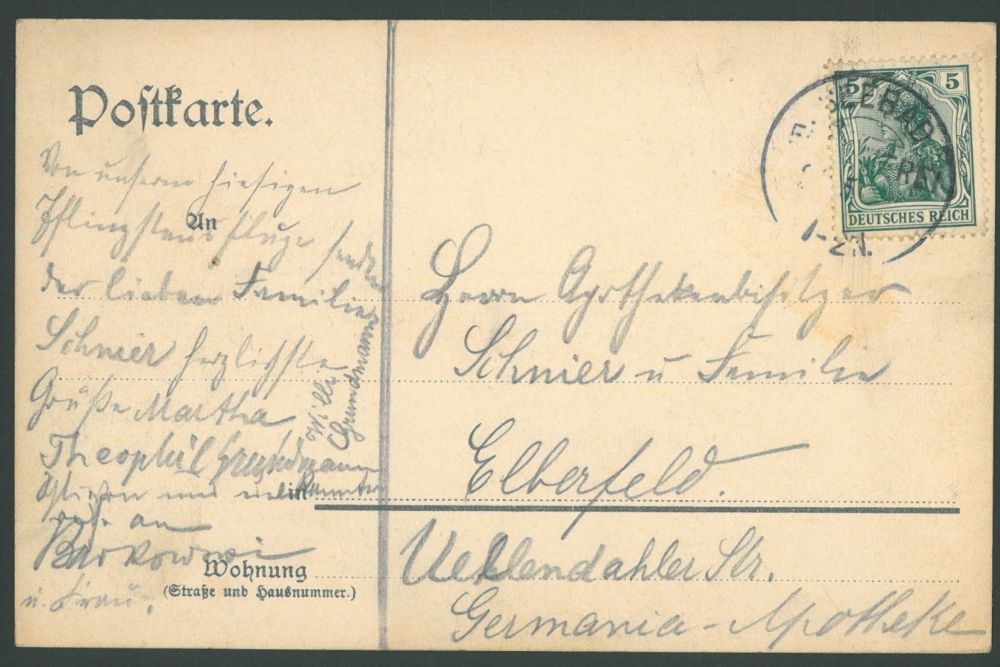 Postkarte.
Von unserm hiesigen
An
Pfingstausfluge senden
der lieben Familie
Schnier herzlichste
Grüße Martha
Theophil Grundmann
Willi
Grundmann
in
an
Wohnung
(Straße und Hausnummer.)
u. Frau.
5 5
DEUTSCHES REICH
SEEBAD
1-2N.
Herrn Apothekenbesitzer
Schnier u Familie
Elberfeld.
Uellendahler Str.
Germania-Apotheke